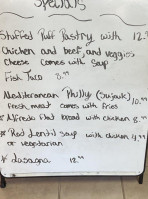 Specials
Stuffed Puff Pastry with 12.99
Chicken and beef and veggies
Cheese comes with Soup
Fish Taco 8.99
Mediterranean Philly (Sujuk) 10.99
fresh meat comes with fries
* Alfredo Flat bread with chicken 8.99
* Red Lentil Soup with chicken 4.99
or vegetarian
* Lasagna 12.99